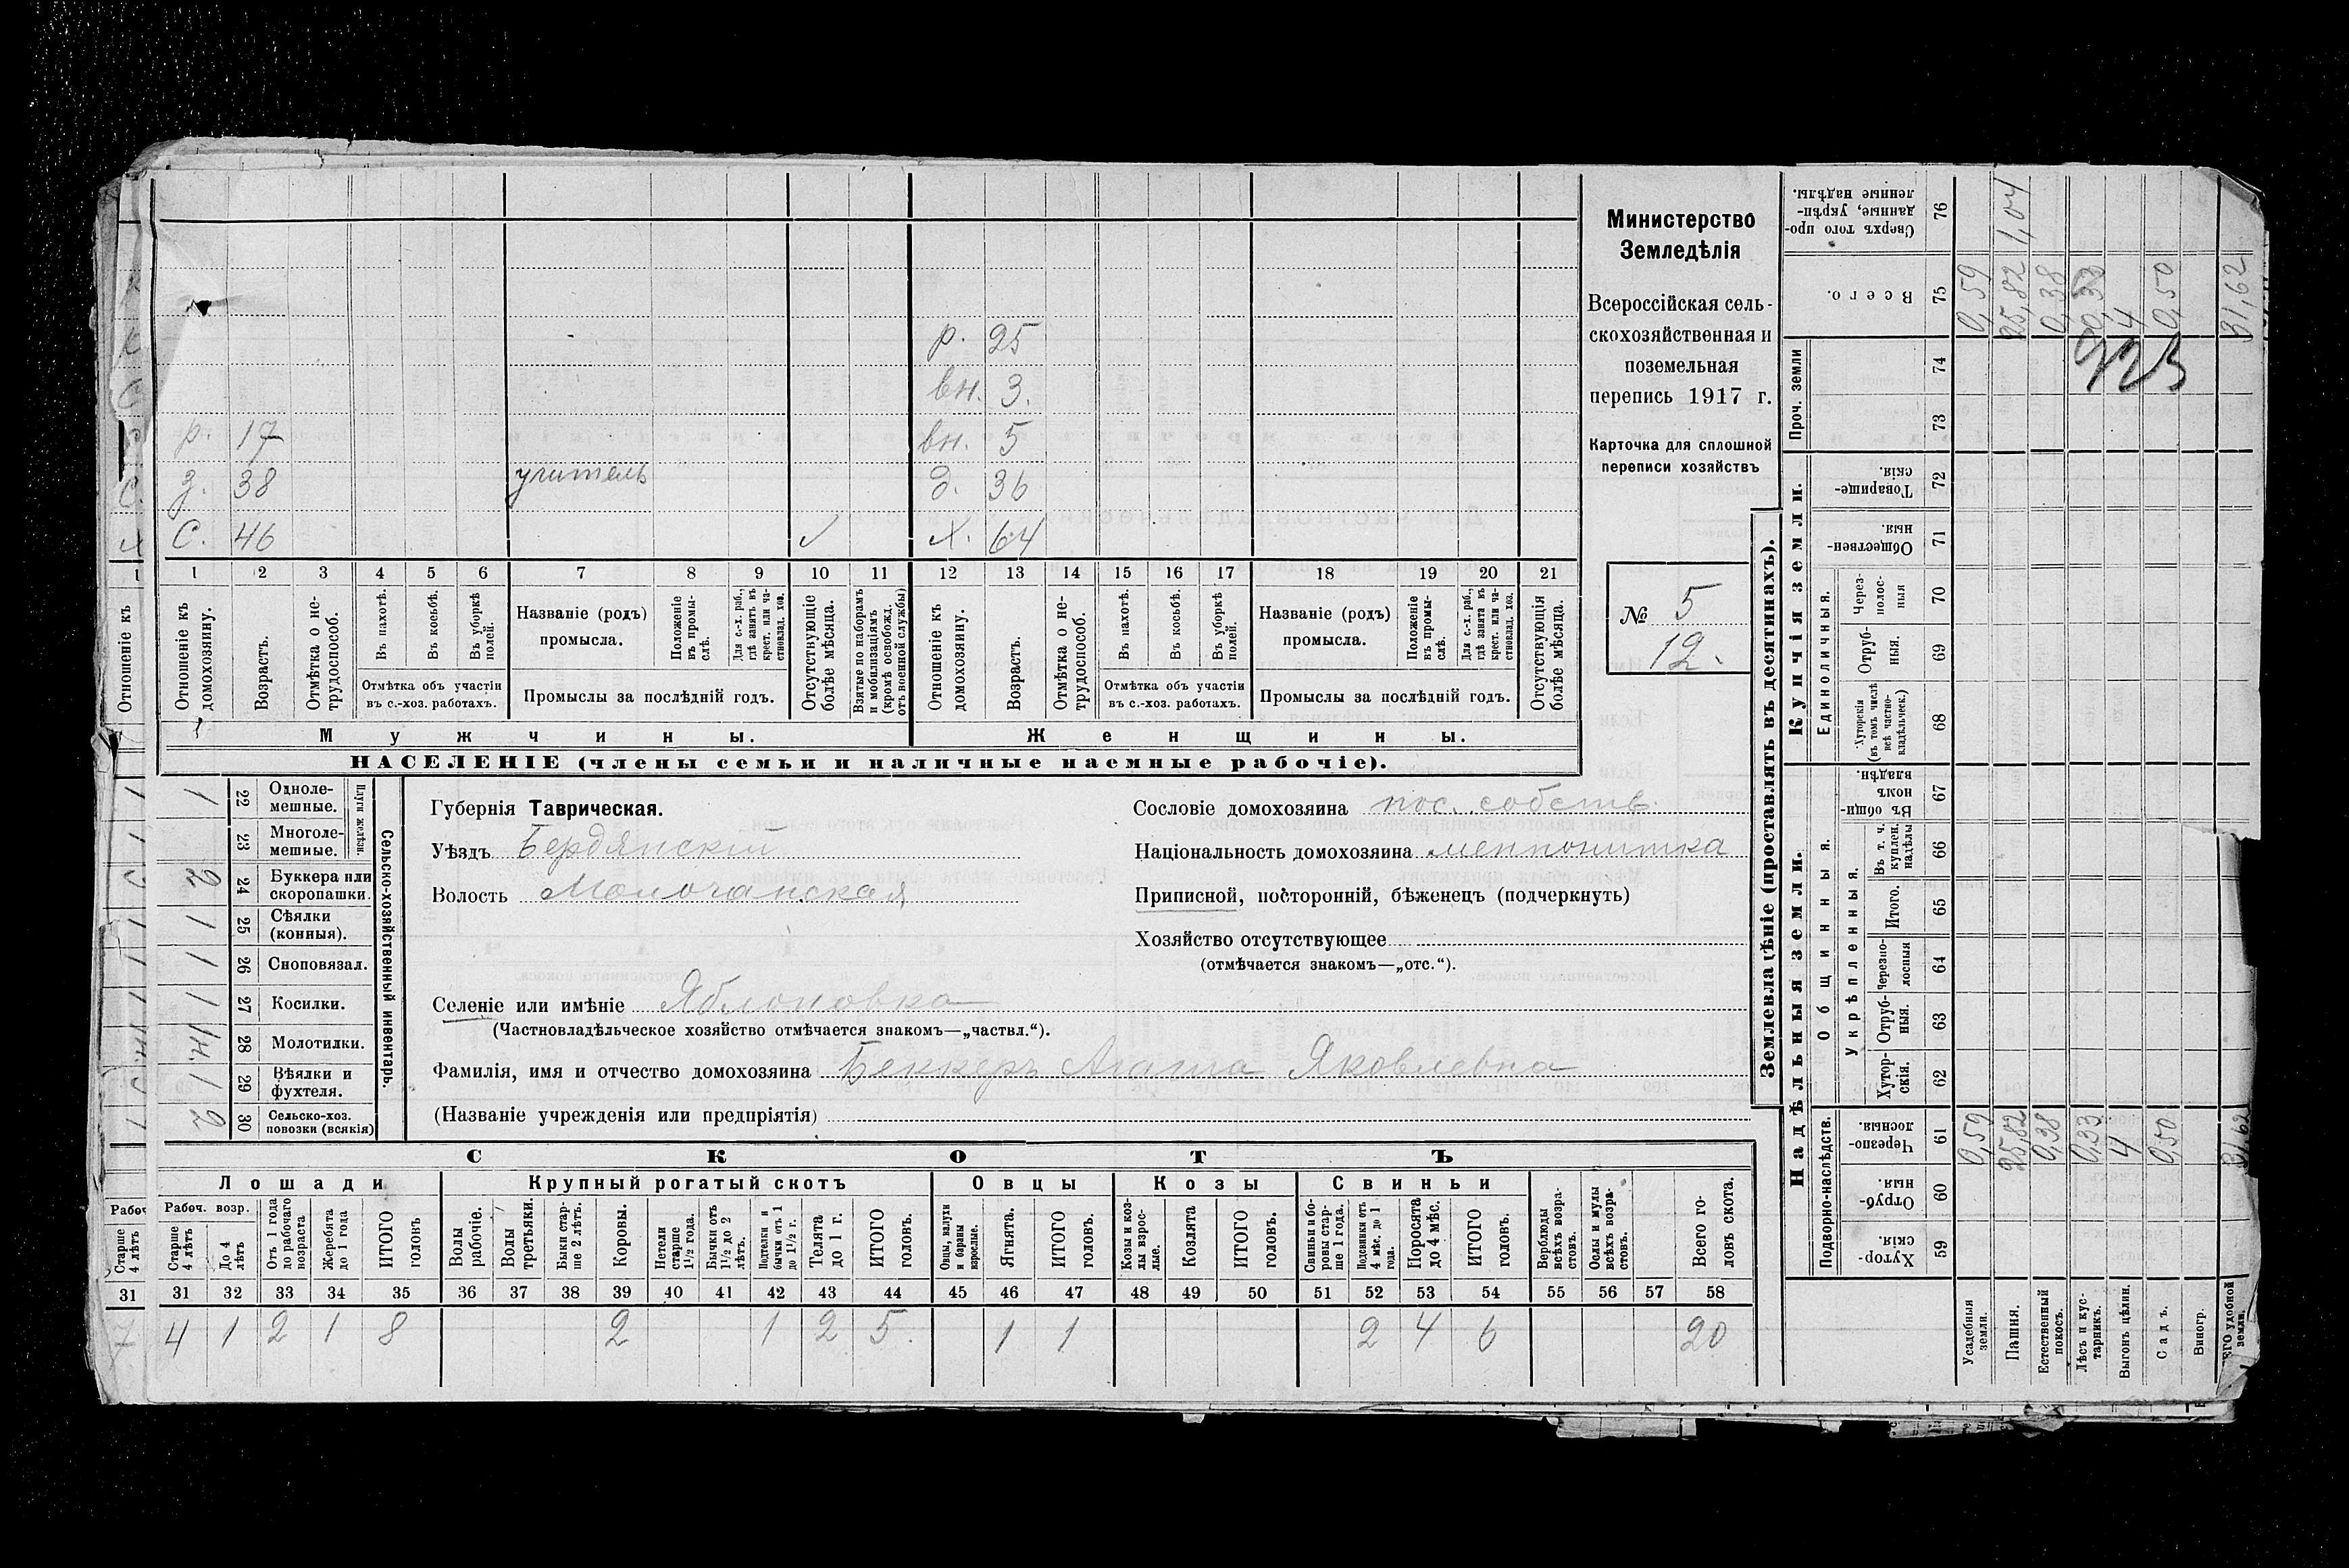 Министерство
Земледѣлія
Всероссійская сель-
скохозяйственная и
поземельная
перепись 1917 г.
Карточка для сплошной
переписи хозяйствъ
№ 5
12.
р. 25
вн. 3.
р. 17 вн. 5
з. 38 учитель д. 36
С. 46 ✓ х. 64
1 2 3 4 5 6 7 8 9 10 11 12 13 14 15 16 17 18 19 20 21
Отношеніе къ домохозяину.
Возрастъ.
Отмѣтка о не-трудоспособ.
Въ пахотѣ.
Въ косьбѣ.
Въ уборкѣ полей.
Отмѣтка объ участіи
въ с.-хоз. работахъ.
Названіе (родъ)
промысла.
Положеніе въ промы-слѣ.
Для с.-х. раб., гдѣ занятъ въ крест. или ча-стновлад. хоз.
Промыслы за послѣдній годъ.
Отсутствующіе болѣе мѣсяца.
Взятые по наборамъ и мобилизаціямъ (кромѣ освобожд. отъ военной службы)
Отношеніе къ домохозяину.
Возрастъ.
Отмѣтка о не-трудоспособ.
Въ пахотѣ.
Въ косьбѣ.
Въ уборкѣ полей.
Отмѣтка объ участіи
въ с.-хоз. работахъ.
Названіе (родъ)
промысла.
Положеніе въ промы-слѣ.
Для с.-х. раб., гдѣ занятъ въ крест. или ча-стновлад. хоз.
Промыслы за послѣдній годъ.
Отсутствующія болѣе мѣсяца.
Мужчины. Женщины.
НАСЕЛЕНІЕ (члены семьи и наличные наемные рабочіе).
Сельско-хозяйственный инвентарь.
Плуги желѣзн.
1 22 Одноле-мешные.
23 Многоле-мешные.
2 24 Буккера или скоропашки.
1 25 Сѣялки (конныя).
1 26 Сноповязал.
1 27 Косилки.
28 Молотилки.
1 29 Вѣялки и фухтеля.
2 30 Сельско-хоз. повозки (всякія)
Губернія Таврическая.
Уѣздъ Бердянскій
Волость Молочанская
Сословіе домохозяина пос. собств.
Національность домохозяина меннонитка
Приписной, посторонній, бѣженецъ (подчеркнуть)
Хозяйство отсутствующее
(отмѣчается знакомъ—„отс.“).
Селеніе или имѣніе Яблоновка
(Частновладѣльческое хозяйство отмѣчается знакомъ—„частвл.“).
Фамилія, имя и отчество домохозяина Беккеръ Агата Яковлевна
(Названіе учрежденія или предпріятія)
СКОТЪ
Лошади Крупный рогатый скотъ Овцы Козы Свиньи
Рабоч. возр.
Старше 4 лѣтъ
До 4 лѣтъ
Отъ 1 года до рабочаго возраста
Жеребята до 1 года
ИТОГО головъ
Волы рабочіе.
Волы третьяки.
Быки стар-ше 2 лѣтъ.
Коровы.
Нетели старше 1½ года.
Бычки отъ 1½ до 2 лѣтъ.
Подтелки и бычки отъ 1 до 1½ г.
Телята до 1 г.
ИТОГО головъ.
Овцы, валухи и бараны взрослые.
Ягнята.
ИТОГО головъ.
Козы и коз-лы взрос-лые.
Козлята
ИТОГО головъ.
Свиньи и бо-ровы стар-ше 1 года.
Подсвинки отъ 4 мѣс. до 1 года.
Поросята до 4 мѣс.
ИТОГО головъ.
Верблюды всѣхъ возра-стовъ.
Ослы и мулы всѣхъ возра-стовъ.
Всего го-ловъ скота.
31 32 33 34 35 36 37 38 39 40 41 42 43 44 45 46 47 48 49 50 51 52 53 54 55 56 57 58
4 1 2 1 8 2 1 2 5. 1 1 2 4 6 20
Землевладѣніе (проставлять въ десятинахъ).
Купчія земли.
Надѣльныя земли.
Проч. земли
Единоличныя.
Общинныя.
Укрѣпленныя.
Подворно-наслѣдств.
76 Сверхъ того про-данные, укрѣп-ленные надѣлы. 1,04
75 Всего. 0,59 25,82 0,38 0,33 4 0,50 31,62
74
73
72 Товарище-скія.
71 Обществен-ныя.
70 Через-полос-ныя
69 Отруб-ныя.
68 Хуторскія (въ томъ числѣ всѣ частно-владѣльческ.)
67 Въ общин-номъ владѣн.
66 Въ т. ч. куплен. надѣлы
65 Итого.
64 Черезпо-лосныя
63 Отруб-ныя.
62 Хутор-скія.
61 Черезпо-лосныя. 0,59 25,82 0,38 0,33 4 0,50 31,62
60 Отруб-ныя.
59 Хутор-скія.
Усадебныя земли.
Пашня.
Естественный покосъ.
Лѣсъ и кус-тарникъ.
Выгонъ цѣлин.
Садъ.
Виногр.
удобной земли.
Отношеніе къ
1
Рабоч
Старше 4 лѣтъ
31
7